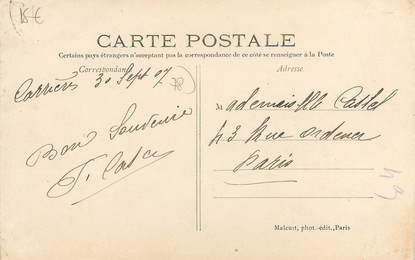 15€
CARTE POSTALE
Certains pays étrangers n'acceptant pas la correspondance de ce côté se renseigner à la Poste
Correspondance
Adresse
Carrières 30 Sept 07
78
Bon Souvenir
Mademoiselle Castel
43 Rue Ordener
Paris
Malcuit, phot.-édit., Paris